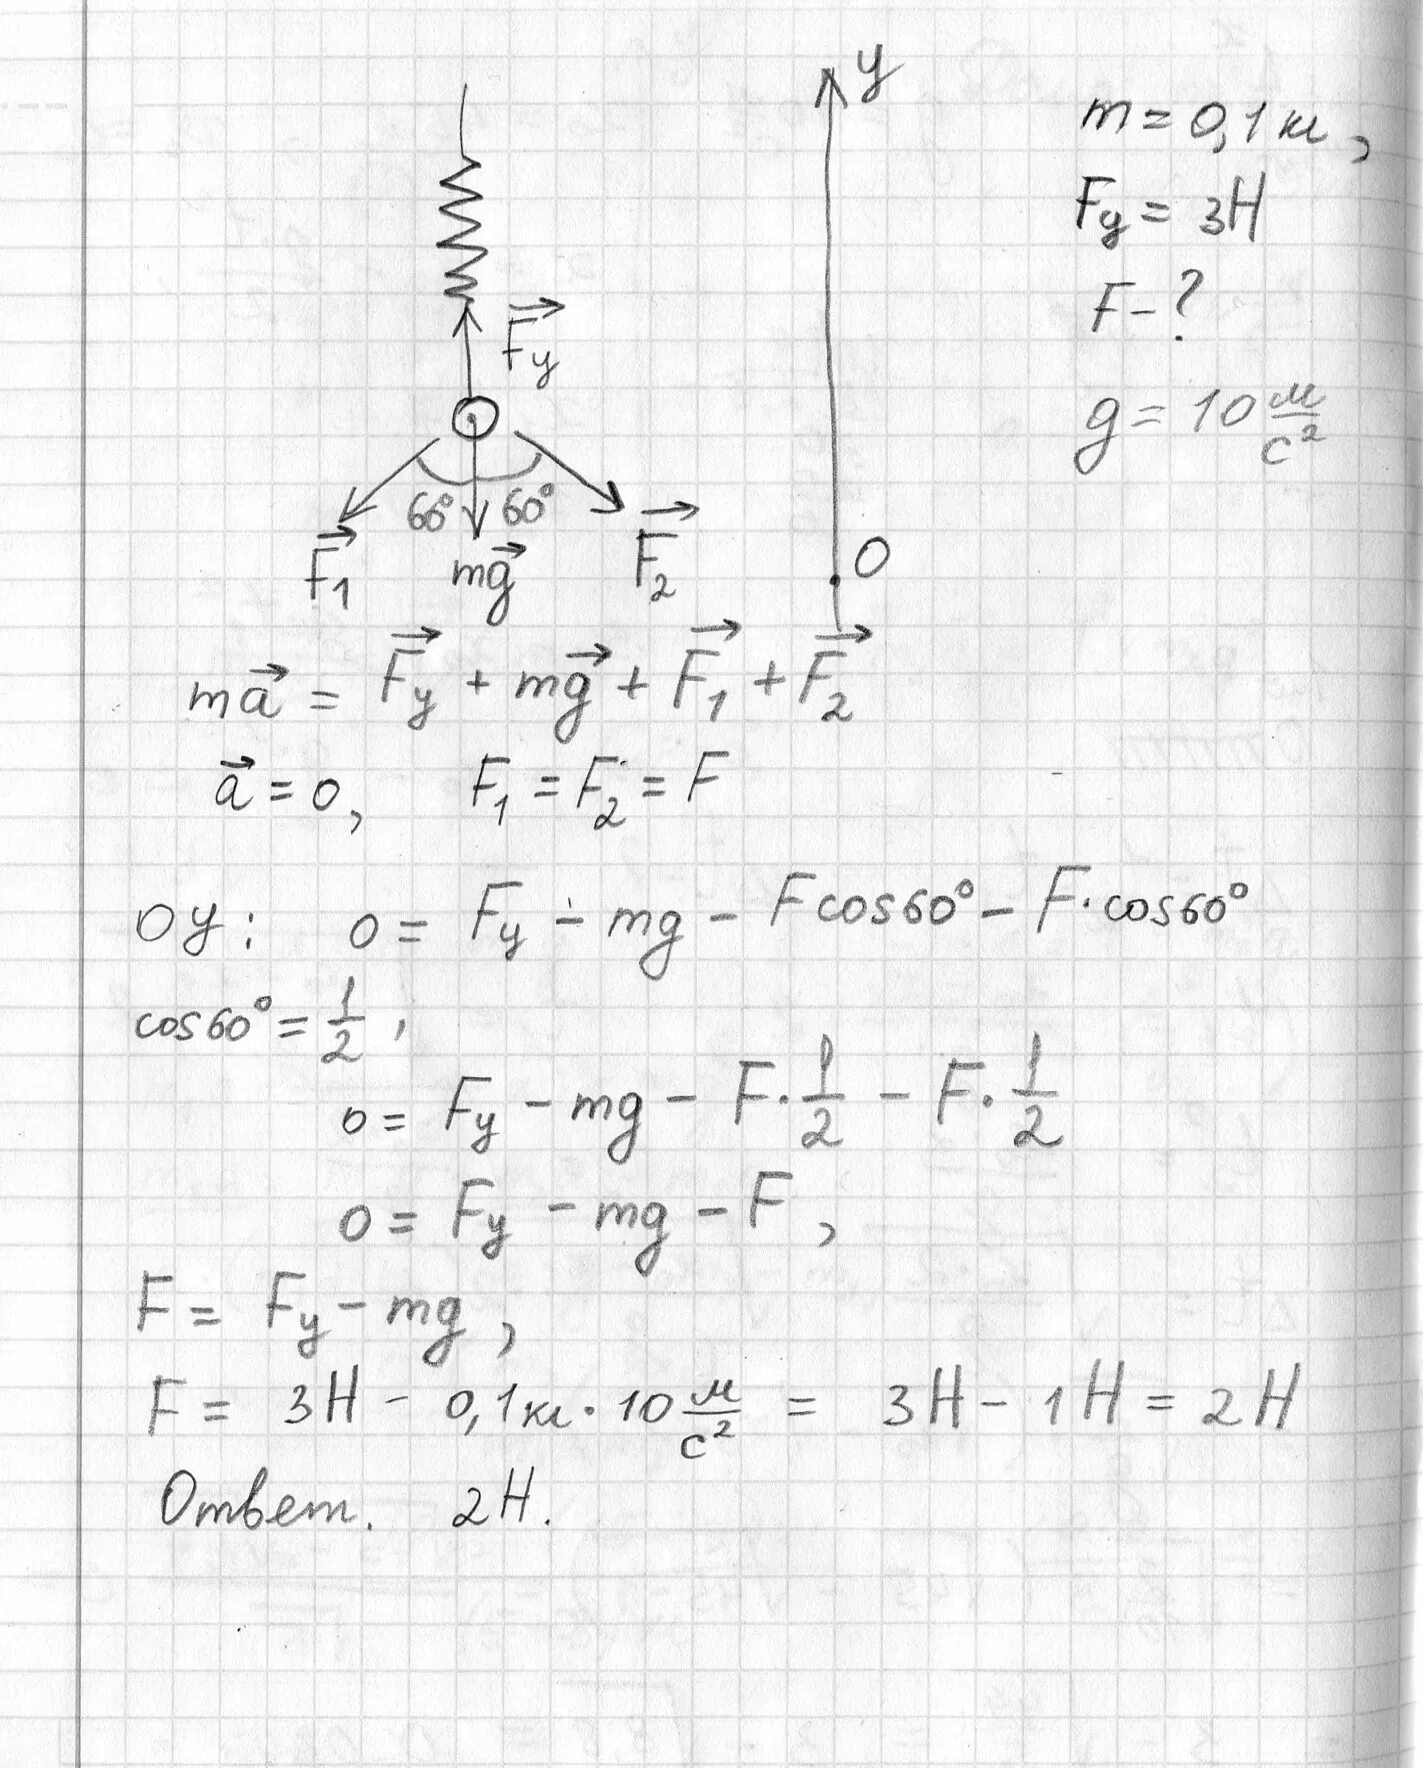 y
m = 0,1 кг,
Fy = 3Н
F - ?
g = 10 м/с²
F⃗y
60° 60°
F⃗1 mg⃗ F⃗2
O
ma⃗ = F⃗y + mg⃗ + F⃗1 + F⃗2
a⃗ = 0, F1 = F2 = F
OY: 0 = Fy - mg - F cos60° - F·cos60°
cos60° = 1/2,
0 = Fy - mg - F·1/2 - F·1/2
0 = Fy - mg - F,
F = Fy - mg,
F = 3Н - 0,1 кг·10 м/с² = 3Н - 1Н = 2Н
Ответ. 2Н.